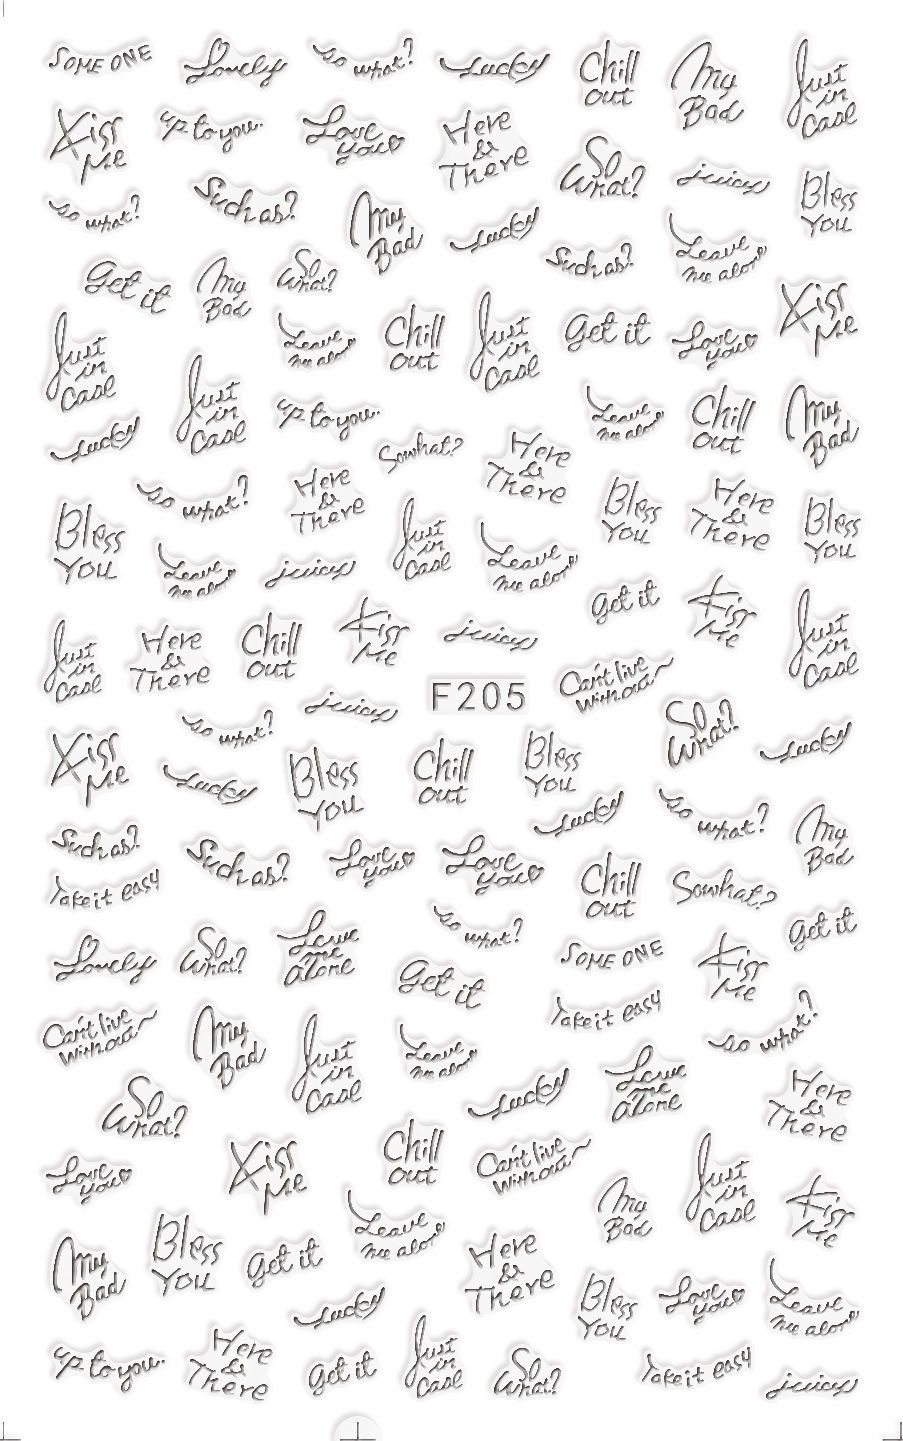 SOME ONE
Lovely
so what?
Lucky
Chill
out
My
Bad
Just
in
Case
Kiss
Me
up to you.
Love
you
Here
&
There
So
What?
juicy
Bless
You
so what?
Such as?
My
Bad
Lucky
Such as?
Leave
me alone
Get it
My
Bad
So
What?
Kiss
Me
Just
in
Case
Leave
me alone
Chill
out
Just
in
Case
Get it
Love
you
Just
in
Case
up to you.
Leave
me alone
Chill
out
My
Bad
Lucky
So what?
Here
&
There
so what?
Here
&
There
Bless
You
Here
&
There
Bless
You
Bless
You
Leave
me alone
juicy
Just
in
Case
Leave
me alone
Get it
Kiss
Me
Just
in
Case
Just
in
Case
Here
&
There
Chill
out
Kiss
Me
juicy
Can't live
without
juicy
F205
so what?
So
What?
Lucky
Kiss
Me
Lucky
Bless
You
Chill
out
Bless
You
Lucky
so what?
My
Bad
Such as?
Such as?
Love
you
Love
you
Chill
out
So what?
Take it easy
Get it
Lovely
So
What?
Leave
me
alone
so what?
Get it
SOME ONE
Kiss
Me
Can't live
without
My
Bad
Just
in
Case
Leave
me alone
Take it easy
so what?
So
What?
Lucky
Leave
me
alone
Here
&
There
Love
you
Kiss
Me
Chill
out
Can't live
without
My
Bad
Just
in
Case
Kiss
Me
My
Bad
Bless
You
Get it
Leave
me alone
Here
&
There
Lucky
Bless
You
Love
you
Leave
me alone
up to you.
Here
&
There
Get it
Just
in
Case
So
What?
Take it easy
juicy